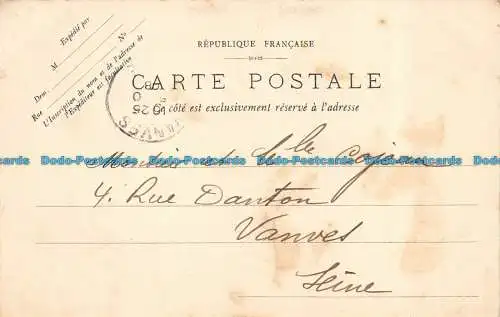 Expédié par
M
Dem. Nº
Rue
L'Inscription du nom et de l'adresse de
l'Expéditeur est facultative
RÉPUBLIQUE FRANÇAISE
CARTE POSTALE
Ce côté est exclusivement réservé à l'adresse
VANVES
25
Dodo-Postcards Dodo-Postcards Dodo-Postcards Dodo-Postcards Dodo-Postcards
et
4. Rue Danton
Vanves
Seine